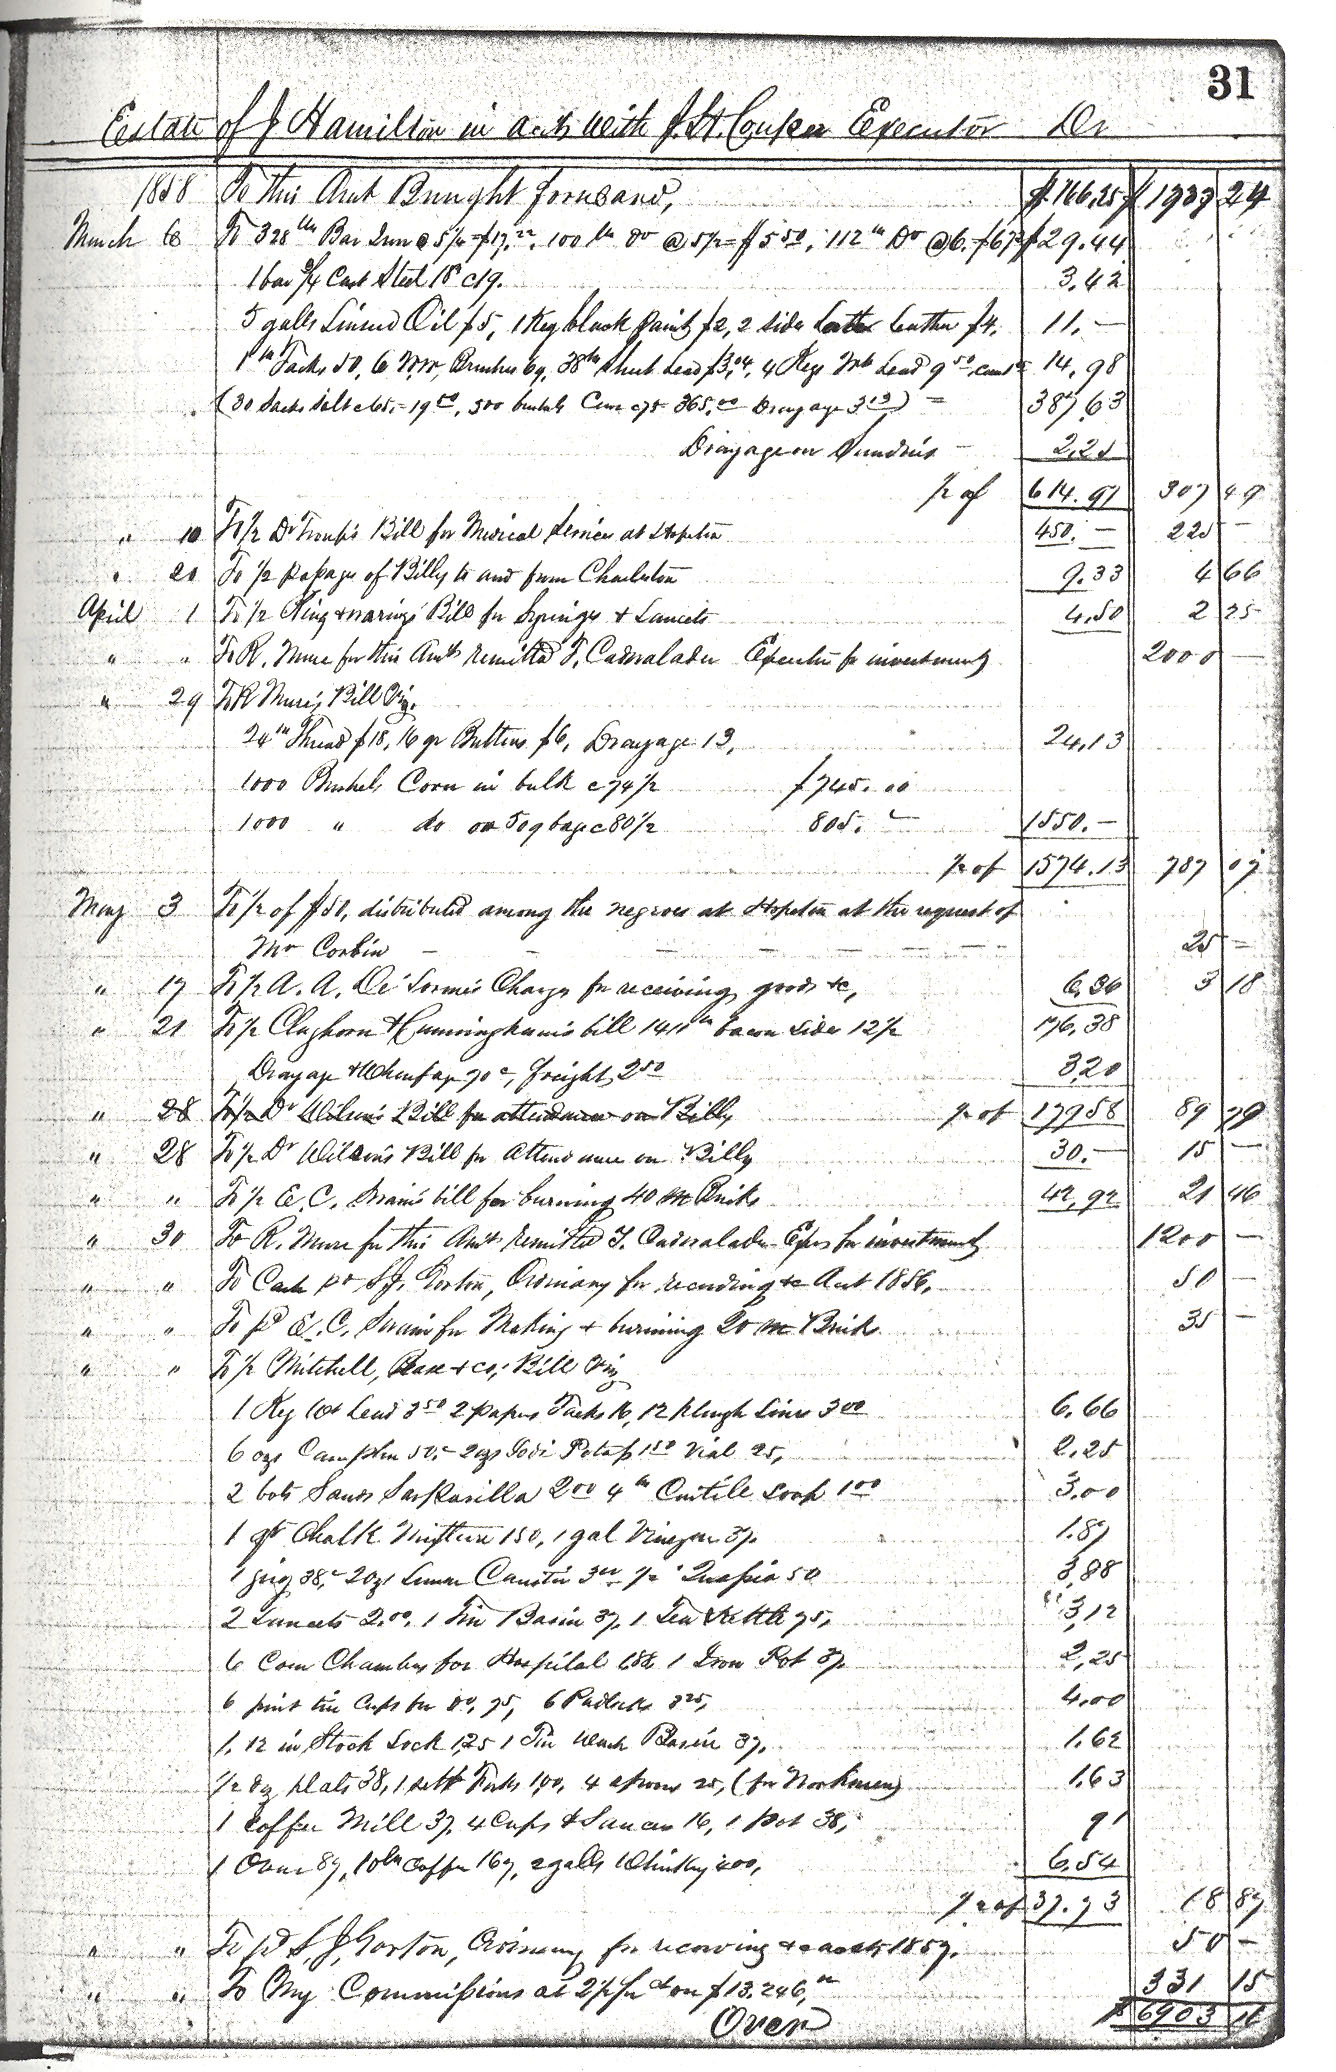 31
Estate of J Hamilton in acct with J. H. Couper Executor Dr
1858 To this Amt Brought forward, $166,25 $1939 24
March 6 To 328 lb Bar Iron @ 5¼ = $17.22, 100 lb do @ 5½ = $5 50, 112 lb Do @ 6. $6 72 $29.44
1 bar ¾ Cast Steel 18 c19. 3.42
5 galls Linseed Oil $5, 1 Keg black paint $2, 2 sides Leather $4. 11.—
1 m Tacks 50, 6 Brushes 69, 38 lb Sheet Lead $3.04, 4 Kegs Lead 9 50 14.98
(30 Sacks Salt c65. = 19 50, 500 bushels Corn c73 365.00 Drayage 3 13) = 387.63
Drayage on Sundries — 2.25
½ of 614.97 307 49
" 10 To ½ Dr Troup's Bill for Medical Services at Hopeton 450.— 225 —
" 20 To ½ passage of Billy to and from Charleston 9.33 4 66
April 1 To ½ King & Waring's Bill for Syringes & Lancets 4.50 2 25
" " To R. Mure for this Amt remitted T. Cadwalader Executor for investment 2000 —
" 29 To R Mure's Bill Viz.
24 lb Thread $18, 16 gr Buttons $6, Drayage 13, 24.13
1000 Bushels Corn in bulk c74½ $745.00
1000 " do in 509 bags c80½ 805. — 1550.—
½ of 1574.13 787 07
May 3 To ½ of $50, distributed among the negroes at Hopeton at the request of
Mr Corbin — — — — — — — 25 —
" 17 To ½ A. A. De Lorme's Charge for receiving goods &c, 6.36 3 18
" 21 To ½ Claghorn & Cunningham's bill 1411 lb bacon sides 12½ 176.38
Drayage & Wharfage 70 c, freight, 2 50 3.20
" 28 To ½ Dr Wilson's Bill for attendance on Billy ½ of 179 58 89 79
" 28 To ½ Dr Wilson's Bill for Attendance on Billy 30.— 15 —
" " To ½ E. C. Swain's bill for burning 40 M Bricks 42.92 21 46
" 30 To R. Mure for this Amt remitted T. Cadwalader Exr for investment 1200 —
" " To Cash pd S. J. Gorton, Ordinary for recording &c Acct 1856, 50 —
" " To pd E. C. Swain for Making & burning 20 M Brick 35 —
" " To ½ Mitchell, & Co; Bill Viz
1 Keg Wt Lead 3 50 2 papers Tacks 16, 12 Plough Lines 3 00 6.66
6 ozs Camphor 50. 2 ozs Iodi Potass 1 50 Vial 25, 2.25
2 bots Sands Sarsparilla 2 00 4 lb Castile Soap 1 00 3.00
1 qt Chalk Mixture 150, 1 gal Vinegar 37. 1.87
1 jug 38, 2 ozs Lunar Caustic 3 00 ½ Quassia 50 3.88
2 Lancets 2.00, 1 Tin Basin 37, 1 Tea Kettle 75, 3,12
6 Com Chambers for Hospital 1.88, 1 Iron Pot 37. 2,25
6 pint tin Cups 75, 6 Padlocks 3 25, 4.00
1. 12 in Stock Lock 1,25 1 Tin Wash Basin 37. 1.62
½ dz plates 38, 1 sett Forks 1,00, 4 25, (for Workmen) 1.63
1 Coffee Mill 37, 4 Cups & Saucers 16, 1 pot 38, 91
1 Oven 87, 10 lb Coffee 167, 2 galls Whiskey 400, 6.54
½ of 37.73 18 87
" " To pd S. J. Gorton, Ordinary for recording & accts 1857. 50 —
" " To My Commissions at 2½ pr ct on $13.246, 331 15
Over $6903 16